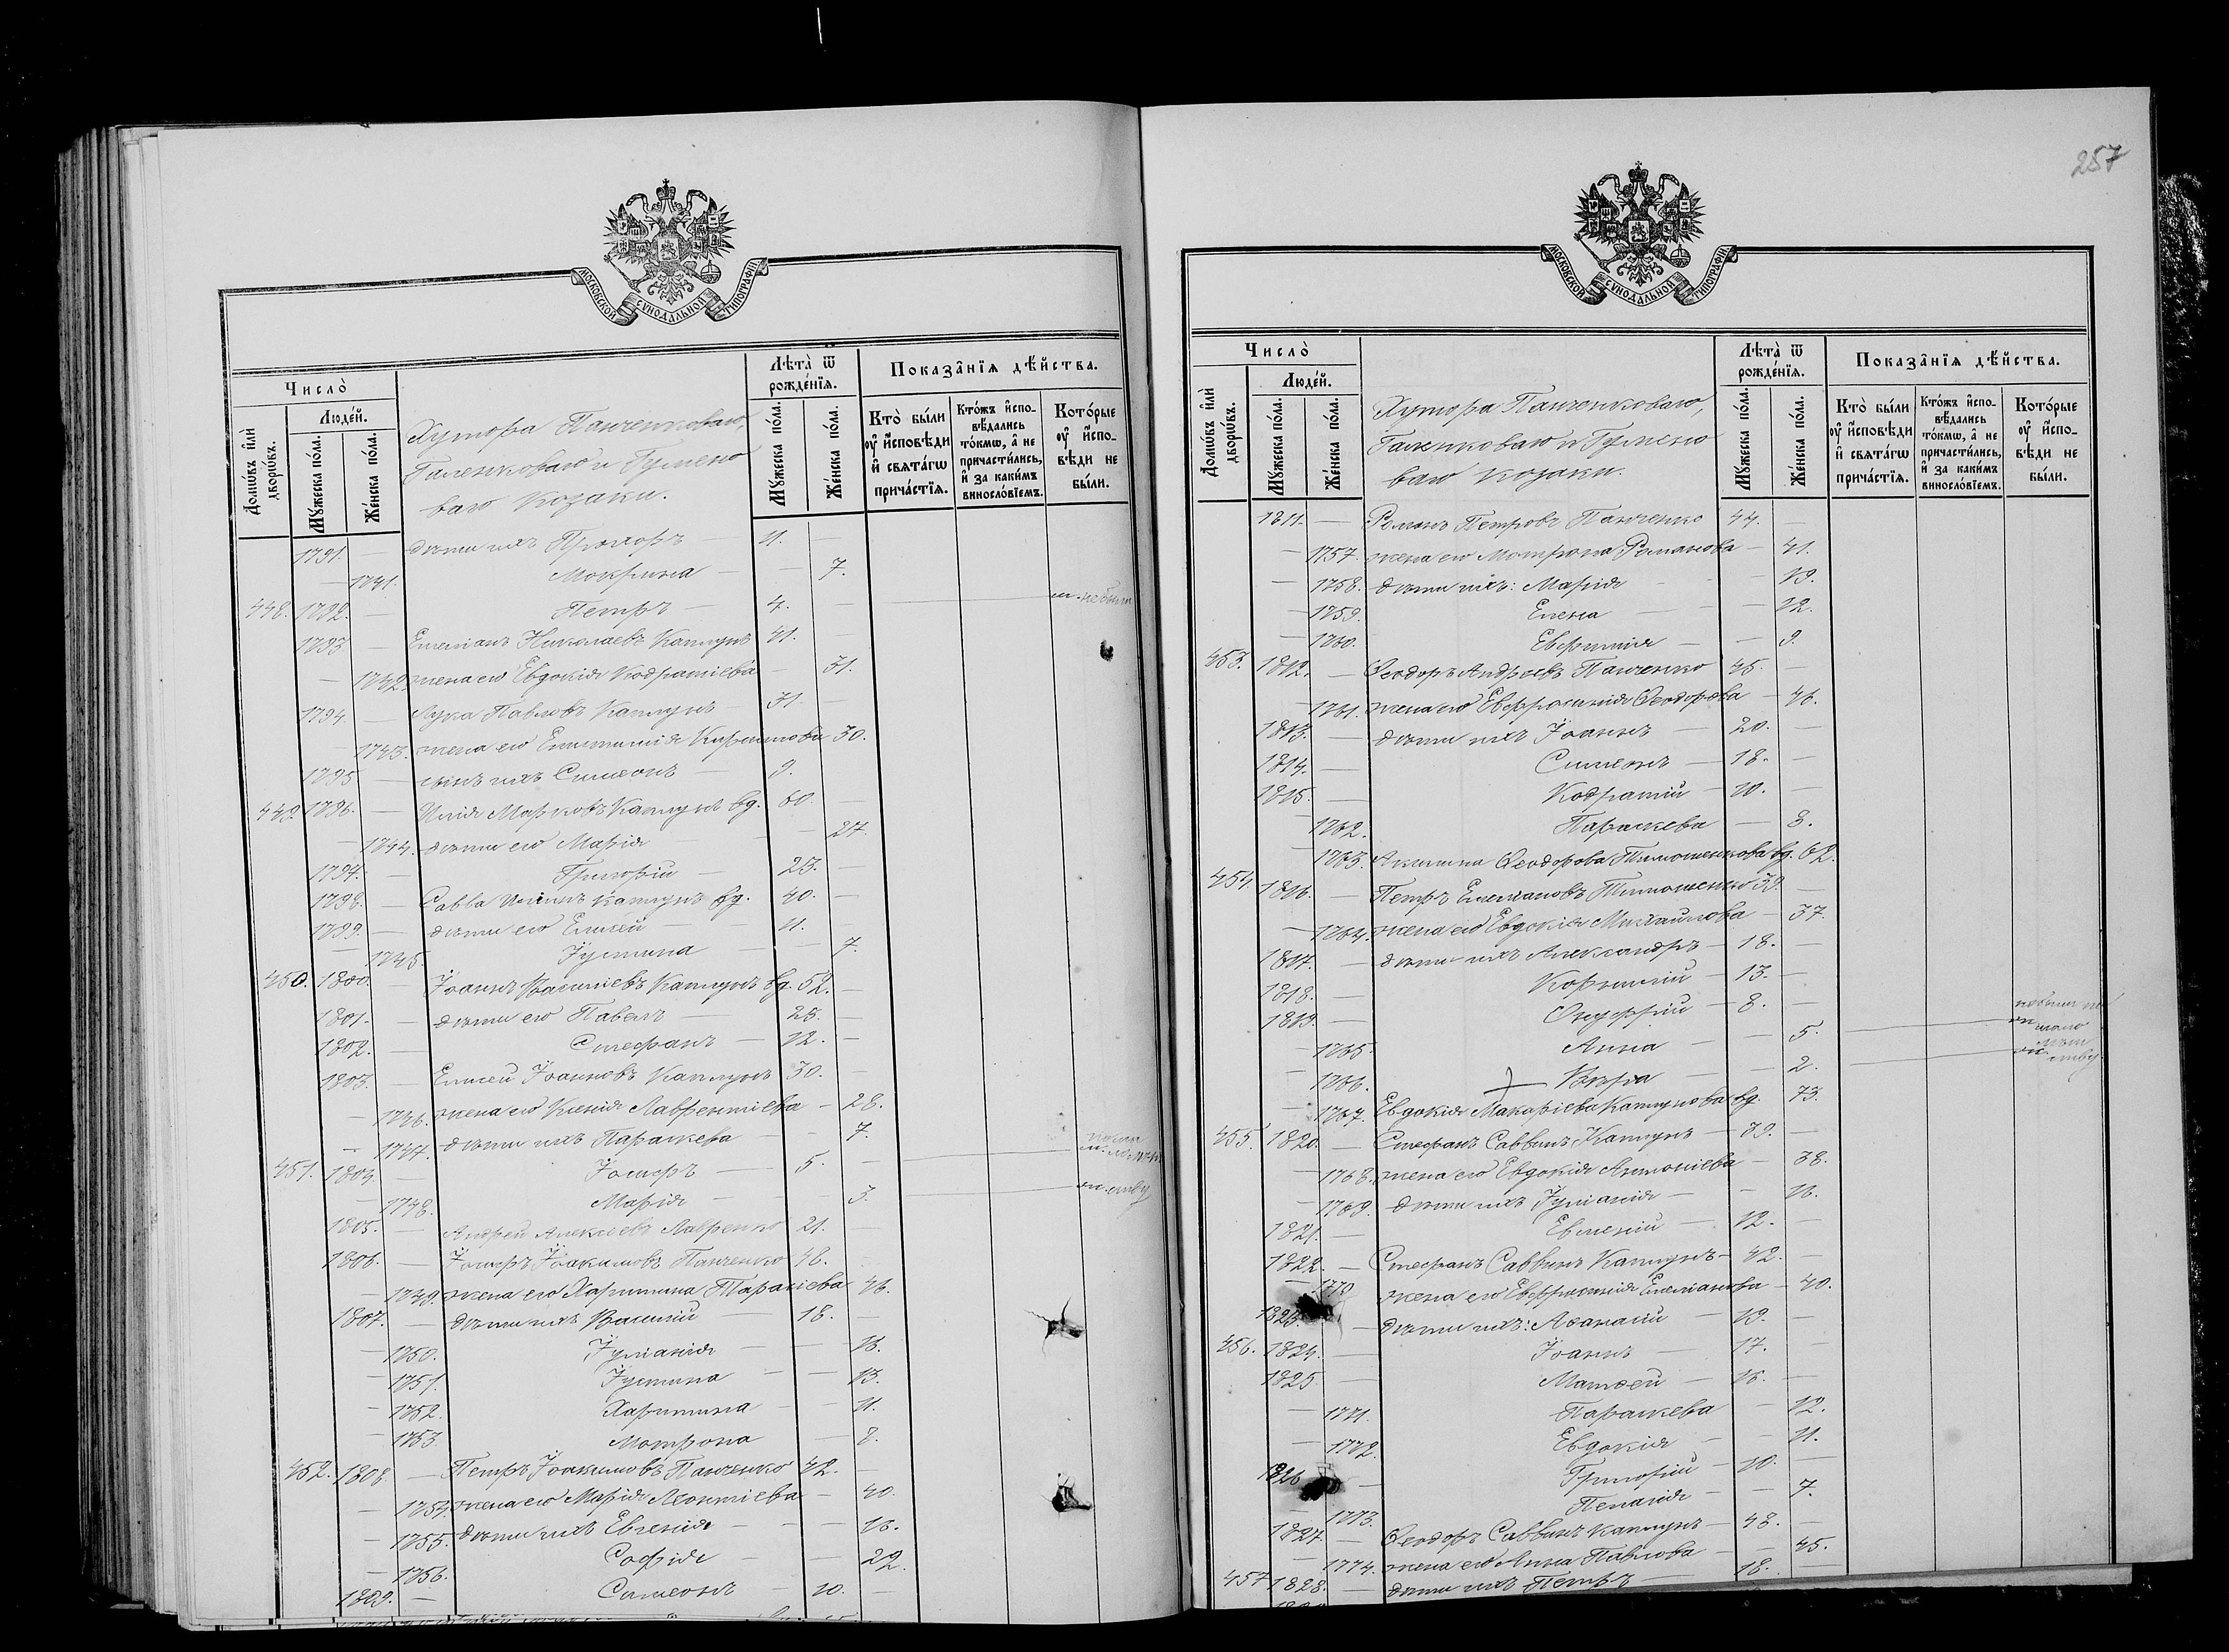 МОСКОВСКОЙ СѴНОДАЛЬНОЙ ТИПОГРАФІИ.
Число̀
Домѡ́въ и҆лѝ дворѡ́въ.
Люде́й.
Мꙋ́жеска по́ла.
Же́нска по́ла.
Хутора Панченковаю,
Галенковаю и Гумено
ваю Козаки.
Лѣта̀ ѿ рожде́нїѧ.
Мꙋ́жеска по́ла.
Же́нска по́ла.
Показа̂нїѧ дѣ́йства.
Кто̀ бы́ли оу҆ и҆сповѣ́ди и҆ свѧта́гѡ прича́стїѧ.
Кто́жъ и҆спо˗вѣ́дались то́кмѡ, а҆ не причасти́лись, и҆ за каки́мъ винослов́їемъ.
Кото́рые оу҆ и҆спо˗вѣ́ди не бы́ли.
1791. — дѣти ихъ Прохоръ 11. —
— 1741. Мокрина — — 7.
448. 1792. — Петръ — 4. не были
1793 — Емеліанъ Николаевъ Каплунъ 41. —
— 1742. жена его Евдокія Кодратіева — 31.
1794. — Лука Павловъ Каплунъ — 31. —
— 1743. жена его 30.
1795 — сынъ ихъ Симеонъ — 9.
449. 1796. — Илія Марковъ Каплунъ вд. 60. —
— 1744. дѣти его Марія — 27.
1797. — Григорій — 23. —
1798. — Савва Иліинъ Каплунъ вд. 40. —
1799. — дѣти его Елисей — 11.
— 1745. Іустина — — 7.
450. 1800. — Іоаннъ Василіевъ Каплунъ вд. 52. —
1801. — дѣти его Павелъ — 25. —
1802. — Стефанъ — 12. —
1803. — Елисей Іоанновъ Каплунъ 30. —
— 1746. жена его Ксенія Лаврентіева — 28.
— 1747. дѣти ихъ Параскева — — 7.
451. 1804. — Іосифъ — 5. —
— 1748. Марія — — 3.
1805. — Андрей Алексіевъ Лавренко 21.
1806. — Іосифъ Іоакимовъ Панченко 48.
— 1749. жена его Харитина Тарасіева 46.
1807. — дѣти ихъ Василій — 18. —
— 1750. Іуліанія — — 16.
— 1751. Іустина — — 13.
— 1752. Харитина — — 11.
— 1753. Мотрона — 8.
452. 1808. — Петръ Іоакимовъ Панченко 42. —
— 1754. жена его Марія Леонтіева — 40.
— 1755. дѣти ихъ Евгенія — — 16.
— 1756. Софія — — 22.
1809. — Симеонъ — 10. —
257
МОСКОВСКОЙ СѴНОДАЛЬНОЙ ТИПОГРАФІИ.
Число̀
Домѡ́въ и҆лѝ дворѡ́въ.
Люде́й.
Мꙋ́жеска по́ла.
Же́нска по́ла.
Хутора Панченковаю,
Галенковаю и Гумено
ваю козаки.
Лѣта̀ ѿ рожде́нїѧ.
Мꙋ́жеска по́ла.
Же́нска по́ла.
Показа̂нїѧ дѣ́йства.
Кто̀ бы́ли оу҆ и҆сповѣ́ди и҆ свѧта́гѡ прича́стїѧ.
Кто́жъ и҆спо˗вѣ́дались то́кмѡ, а҆ не причасти́лись, и҆ за каки́мъ винослов́їемъ.
Кото́рые оу҆ и҆спо˗вѣ́ди не бы́ли.
1811. — Романъ Петровъ Панченко 44. —
— 1757. жена его Мотрона Романова — 41.
— 1758. дѣти ихъ: Марія — 19.
— 1759. Елена — — 12.
— 1760. Евфимія — — 9.
453. 1812. — Ѳеодоръ Андреевъ Панченко 45. —
— 1761. жена его Евфросинія Ѳеодорова — 46.
1813. — дѣти ихъ Іоаннъ — 20. —
1814. — Симеонъ — 18. —
1815. — Кодратій — 10. —
— 1762. Параскева — 8.
— 1763. Ѳеодорова Тимошенкова вд. 62.
454. 1816. — Петръ Емеліановъ Тимошенко 39. —
— 1764. жена его Евдокія Михаилова — 37.
1817. — дѣти ихъ Александръ — 18. —
1818. — Корнилій — 13. —
1819. — Онуфрій — 8. —
— 1765. Анна — — 5.
— 1766. Вѣра — — 2.
— 1767. Евдокія Макаріева Каплунова вд. 73.
455. 1820. — Стефанъ Саввинъ Каплунъ — 39. —
— 1768. жена его Евдокія Антоніева — 38.
— 1769. дѣти ихъ Іуліанія — — 16.
1821. — Евменій — 12. —
1822. — Стефанъ Саввинъ Каплунъ — 42. —
— 1770 жена его Евфросинія Емеліанова — 40.
1823. — дѣти ихъ: Аѳанасій — 19. —
456. 1824. — Іоаннъ — 17. —
1825 — Матѳей — 16. —
— 1771. Параскева — 12.
— 1772. Евдокія — — 11.
1826 — Григорій — 10. —
— 1773. Пелагія — — 7.
1827. — Ѳеодоръ Саввинъ Каплунъ — 48. —
— 1774. жена его Анна Павлова — — 45.
457 1828. — дѣти ихъ Петръ — 18. —